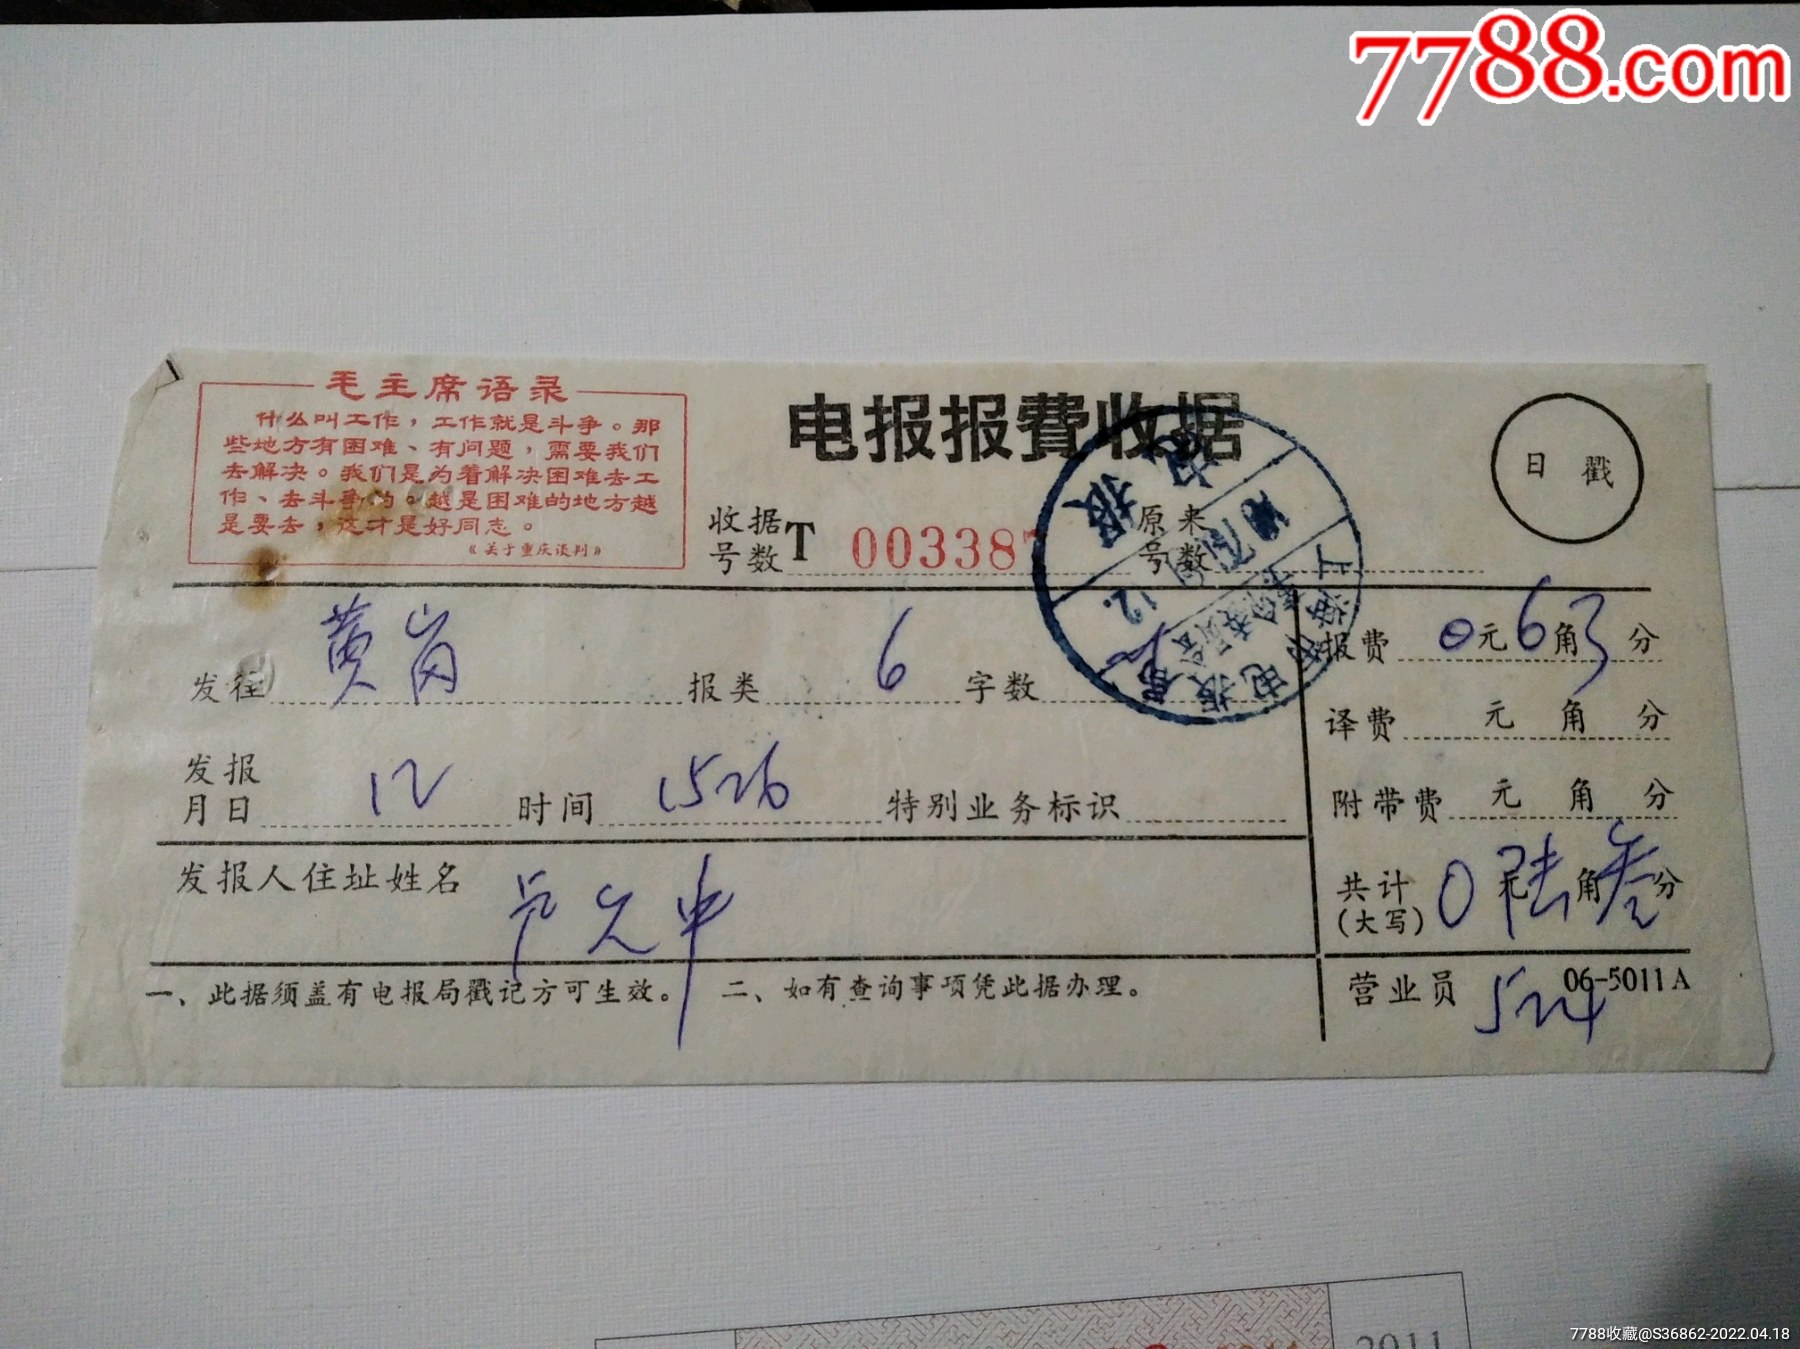 7788.com
毛主席语录
什么叫工作，工作就是斗争。那
些地方有困难、有问题，需要我们
去解决。我们是为着解决困难去工
作、去斗争的。越是困难的地方越
是要去，这才是好同志。
《关于重庆谈判》
电报报费收据
日戳
收据号数 T 00338
原来号数
发往 黄岗 报类 6 字数
报费 0元6角3分
译费 元 角 分
发报月日 12 时间 1526 特别业务标识
附带费 元 角 分
发报人住址姓名
共计(大写) 0元陆角叁分
一、此据须盖有电报局戳记方可生效。 二、如有查询事项凭此据办理。
营业员 524
06-5011A
2011
7788收藏@S36862-2022.04.18